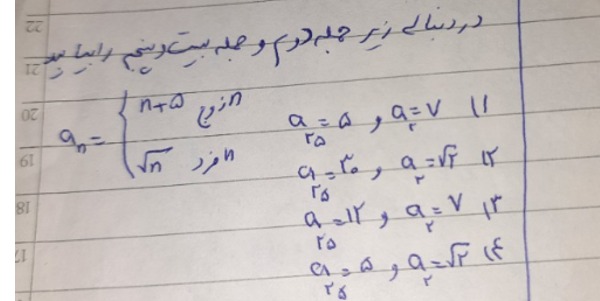 در دنباله زیر جمله دوم و جمله بیست و پنجم را بیابید
aₙ = { n+۵ زوج n
√n فرد n
۱) a₂=۷ و a₂₅=۵
۲) a₂=√۲ و a₂₅=۳۰
۳) a₂=۷ و a₂₅=۱۲
۴) a₂=√۲ و a₂₅=۵
22
21
20
19
18
17